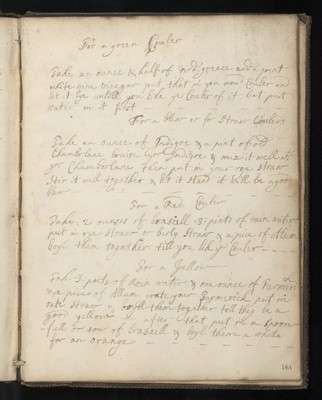 For a green Couler
Take an ounce & half of verdigreace and a pint
white wine vinegar put that in you your Couler and
let it lye untill you like ye Couler of it, but put
water in it first
For a blew or for Straw Coulers
Take an ounce of Indigoe & a pint of old
Chamberlane bruise your Indigoe & mix it well with
ye Chamberlane then put in your rye Straw
Stir it well together & let it stand it will be a good
blew
For a Red Couler
Take 2 ounces of brasiell 3 pints of rain water
put in rye Straw or barly Straw & a piece of Allum
boyl them together till you like ye Couler
For a Yellow
Take 3 pints of Rain water & one ounce of
& a piece of Allum grate your Turmerick put in
oate Straw & boyle them together till they be a
good yellow & after that put in a spoon
full or tow of brasiell & boyl them a while
for an orange
161